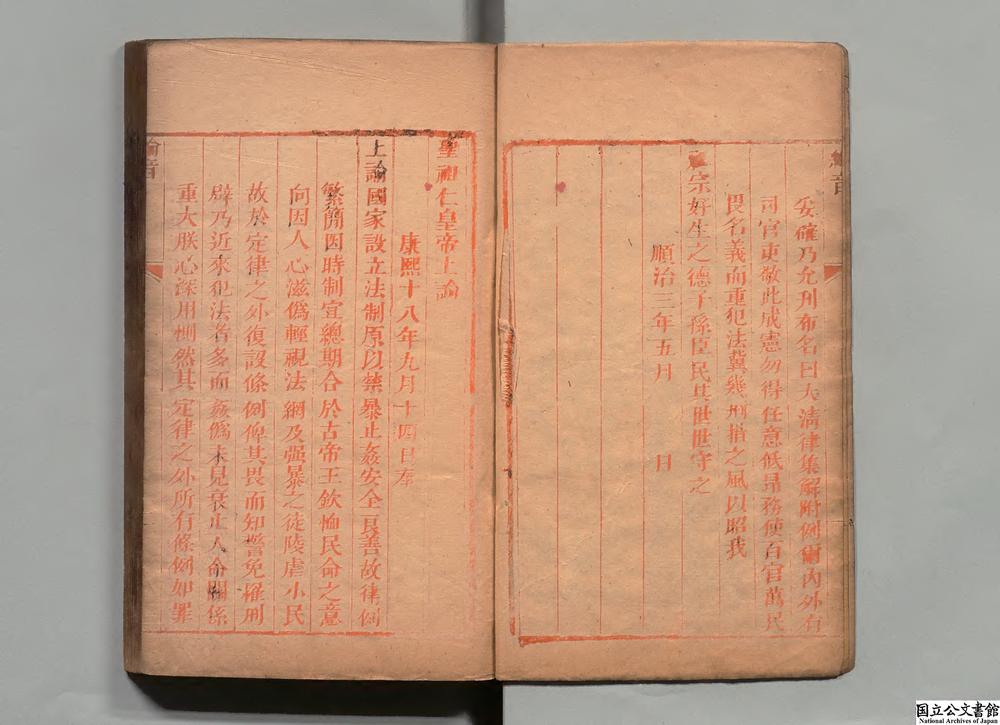 妥確乃允刊布名曰大淸律集解附例爾內外有
司官吏敬此成憲勿得任意低昻務使百官萬民
畏名義而重犯法冀幾刑措之風以昭我
祖宗好生之德子孫臣民其世世守之
順治三年五月 日
聖祖仁皇帝上諭
康熙十八年九月十四日奉
上諭國家設立法制原以禁暴止姦安全良善故律例
繁簡因時制宜總期合於古帝王欽恤民命之意
向因人心滋僞輕視法網及强暴之徒陵虐小民
故於定律之外復設條例俾其畏而知警免罹刑
辟乃近來犯法者多而姦僞未見衰止人命關係
重大朕心深用惻然其定律之外所有條例如罪
国立公文書館
National Archives of Japan